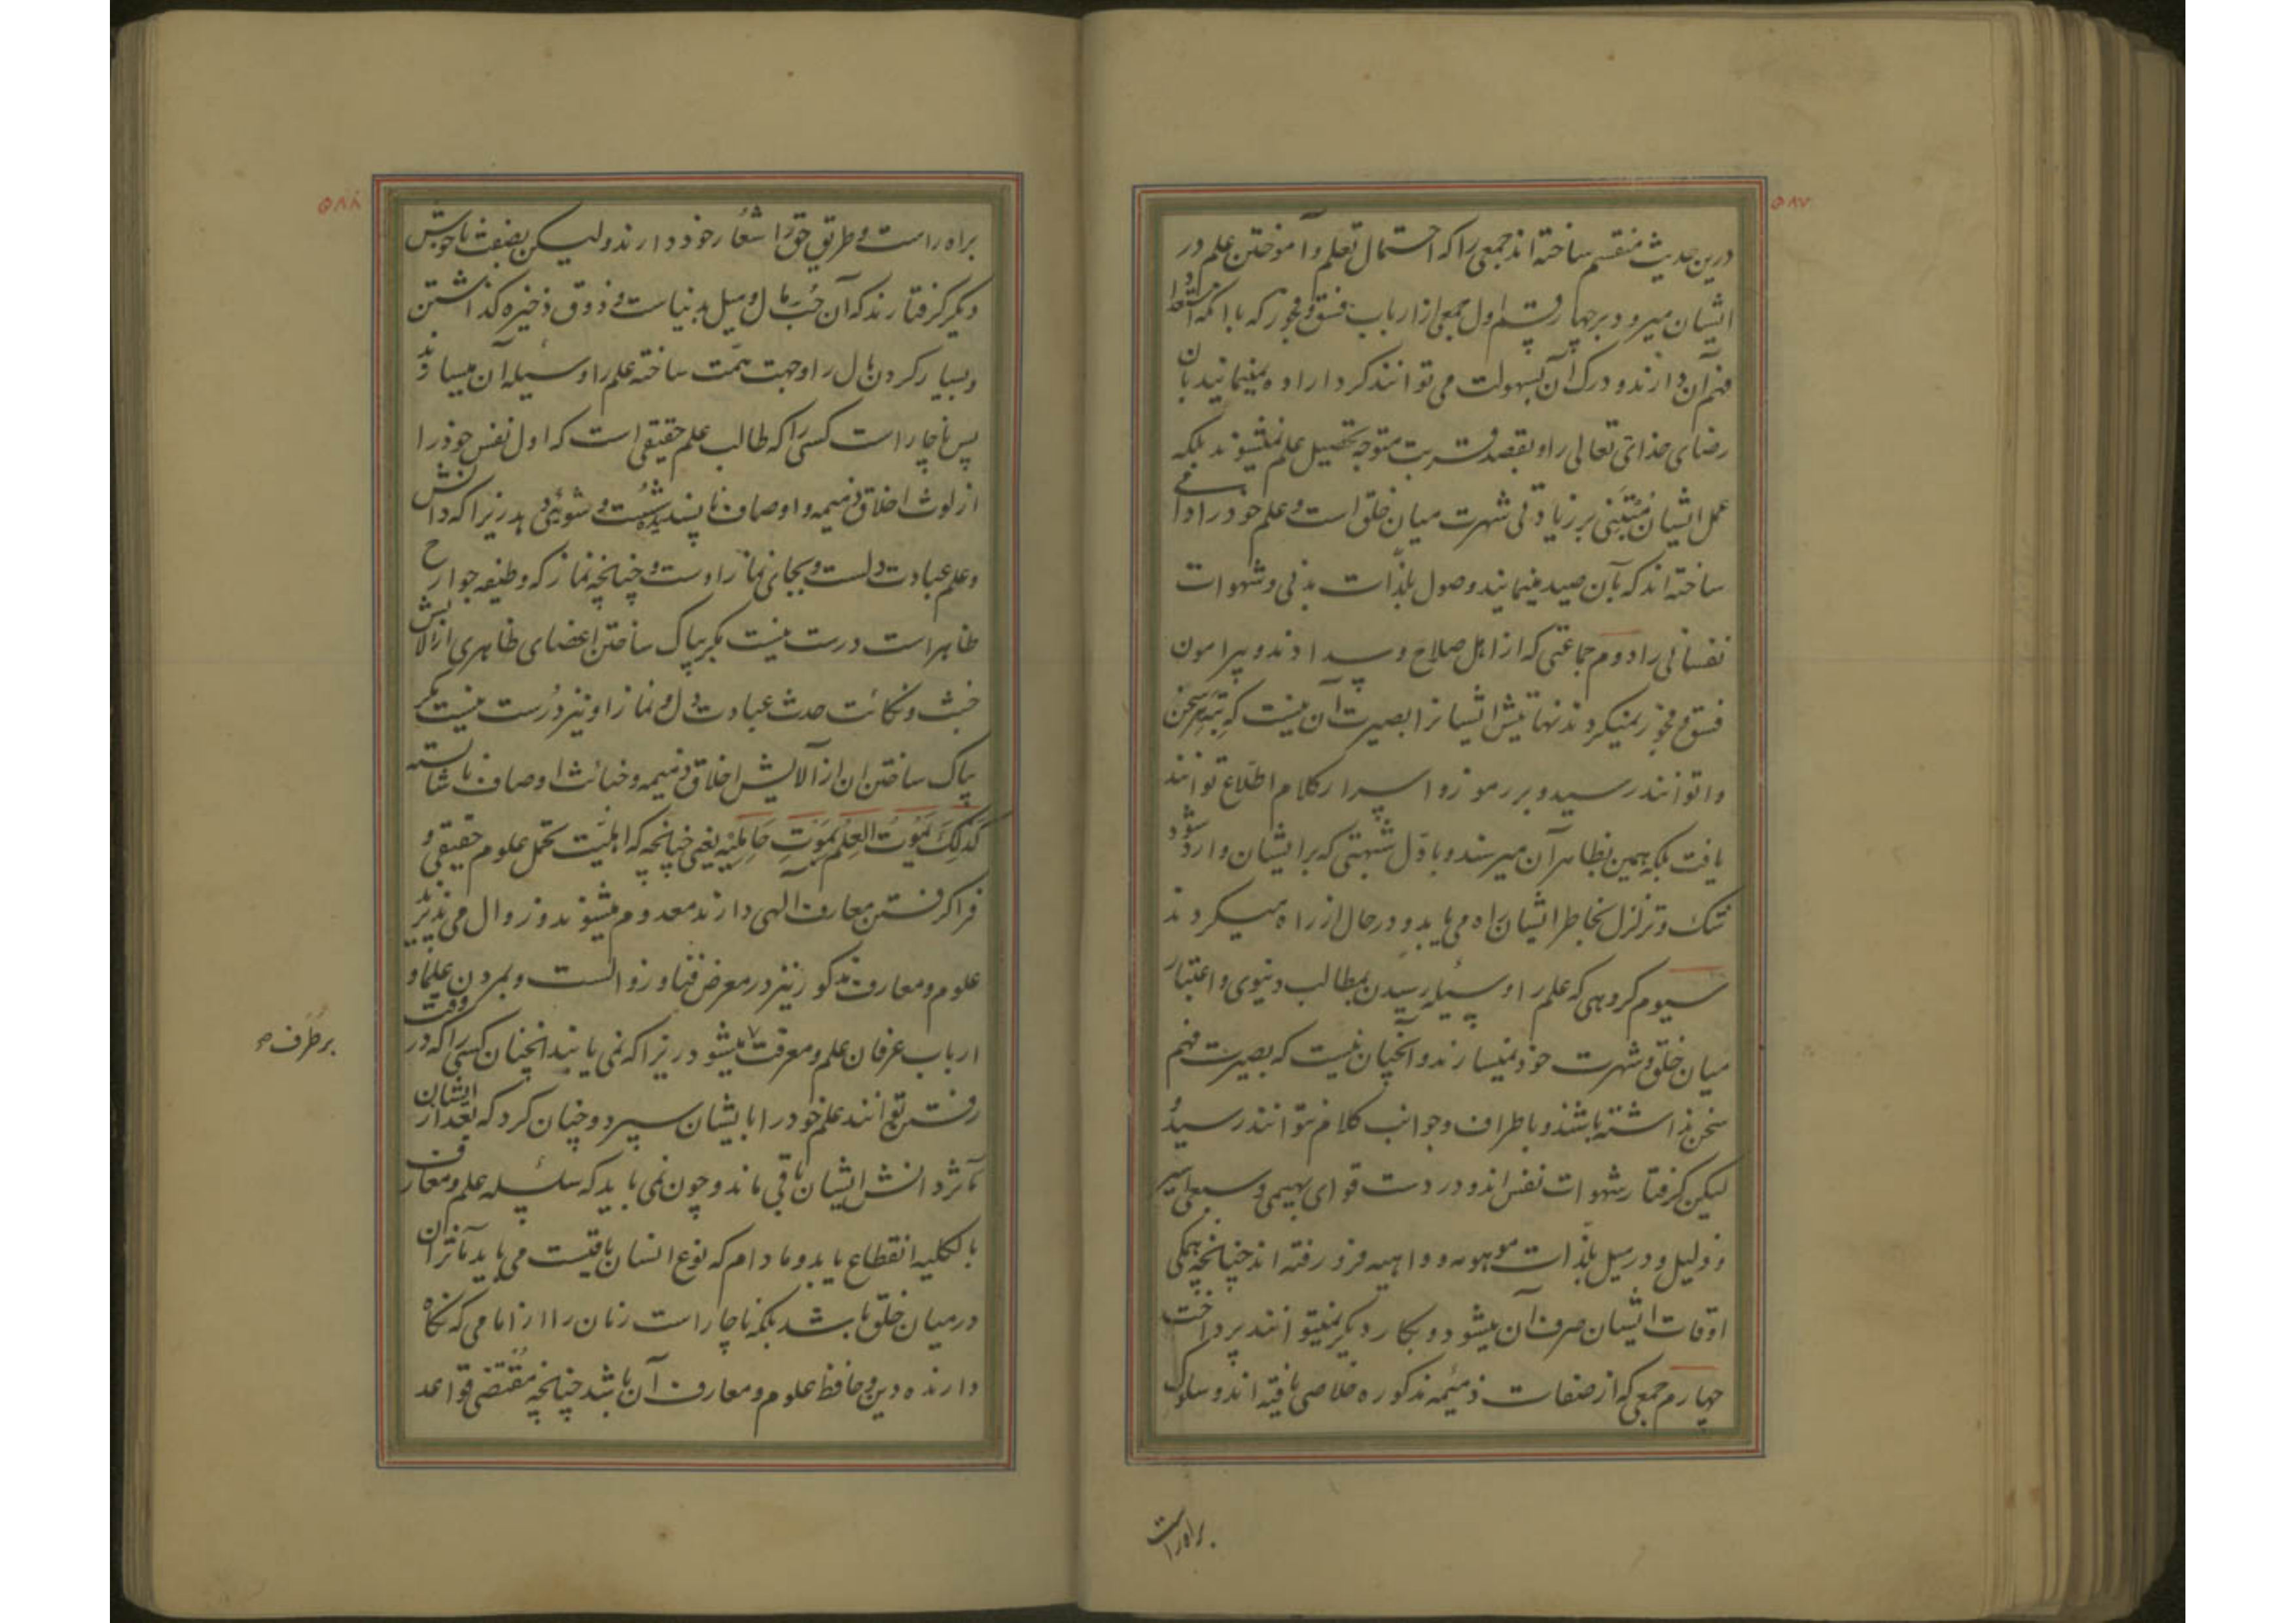 ۵۸۷
درین حدیث منقسم ساخته اند جمعی را که احتمال تعلم و آموختن علم در
ایشان میرود بر چهار قسم اول جمعی از ارباب فسق و فجور که با آنکه استعداد
فهم آن دارند و درک آن بسهولت می توانند کرد اراده نمینمایند بان
رضای خدای تعالی را و بقصد قربت متوجه تحصیل علم نمیشوند بلکه
عمل ایشان مبتنی بر زیادتی شهرت میان خلق است و علم خود را دامی
ساخته اند که بآن صید مینمایند وصول بلذات بدنی و شهوات
نفسانی را دوم جماعتی که از اهل صلاح و سدادند و پیرامون
فسق و فجور نمیکردند نهایتش ایشانرا بصیرت آن نیست که بته سخن
واتوانند رسید و بر رموز و اسرار کلام اطلاع توانند
یافت بلکه همین بظاهر آن میرسند و باول شبهتی که بر ایشان وارد شود
شک و تزلزل بخاطر ایشان راه می یابد و در حال از راه میکردند
سیوم کروهی که علم را وسیله رسیدن بمطالب دنیوی و اعتبار
میان خلق و شهرت خود نمیسازند و آنچنان نیست که بصیرت فهم
سخن نداشته باشند و باطراف و جوانب کلام نتوانند رسید
لیکن کرفتار شهوات نفس اند و در دست قوای بهیمی و سبعی اسیر
و ذلیل و در میل بلذات موهومه و واهیه فرو رفته اند چنانچه همکی
اوقات ایشان صرف آن میشود و بکار دیکر نمیتوانند پرداخت
چهارم جمعی که از صفات ذمیمه مذکوره خلاصی یافته اند و سلوک
براه راست
۵۸۸
براه راست و طریق حق را شعار خود دارند ولیکن بصفت ناخوش
دیکر کرفتارند که آن حب مال و میل بدنیاست و ذوق ذخیره کذاشتن
و بسیار کردن مال را وجهت همت ساخته علم را وسیله آن میسازند
پس ناچار است کسی را که طالب علم حقیقی است که اول نفس خود را
از لوث اخلاق ذمیمه و اوصاف ناپسندیده شست و شوئی دهد زیرا که دانش
و علم عبادت دلست و بجای نماز اوست و چنانچه نماز که وظیفه جوارح
ظاهر است درست نیست مکر بپاک ساختن اعضای ظاهری از الایش
خبث و نکائت حدث عبادت دل و نماز او نیز درست نیست مکر
پاک ساختن ان از آلایش اخلاق ذمیمه و خبائث اوصاف ناشایسته
کذلک یموت العلم بموت حاملیه یعنی چنانچه که اهلیت تحمل علوم حقیقی و
فرا کرفتن معارف آلهی دارند معدوم میشوند و زوال می پذیرند
علوم و معارف مذکور نیز در معرض فنا و زوالست و بمردن علما و
ارباب عرفان علم و معرفت ۷ میشود زیرا که نمی یابند انچنان کسی را که در وقت
برطرف صح
رفتن توانند علم خود را بایشان سپرد و چنان کرد که بعد از ایشان
مآثر دانش ایشان باقی ماند و چون نمی باید که سلسله علم و معارف
بالکلیه انقطاع یابد و مادام که نوع انسان باقیست می باید مآثر ان
در میان خلق باشد بلکه ناچار است زمان را از امامی که نکاه
دارنده دین و حافظ علوم و معارف آن باشد چنانچه مقتضی قواعد